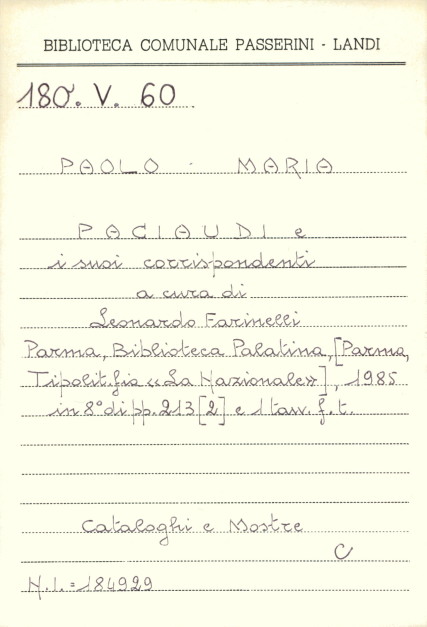 BIBLIOTECA COMUNALE PASSERINI - LANDI
180. V. 60
PAOLO - MARIA
PACIAUDI e
i suoi corrispondenti
a cura di
Leonardo Farinelli
Parma, Biblioteca Palatina, [Parma,
Tipolit.fia «La Nazionale»], 1985
in 8° di pp. 213 [2] e 1 tav. f. t.
Cataloghi e Mostre
C
N.I. = 184929